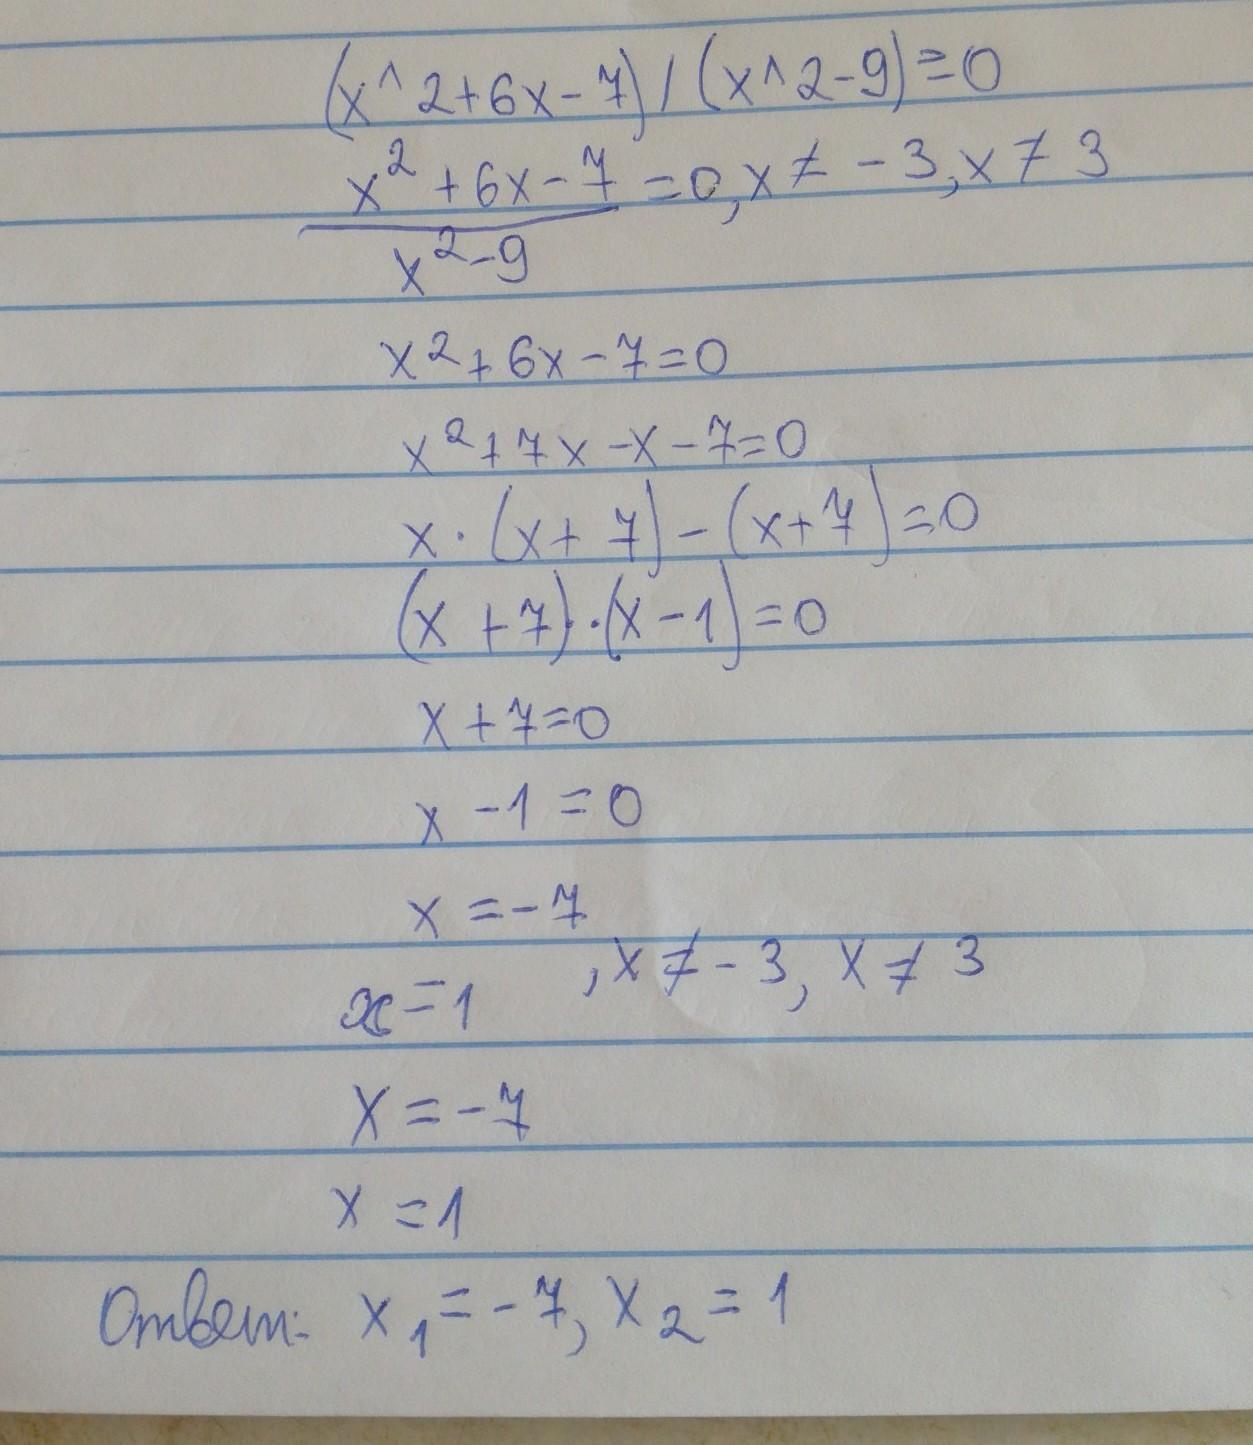 (x^2+6x-7)/(x^2-9)=0
x²+6x-7
=0, x≠-3, x≠3
x²-9
x²+6x-7=0
x²+7x-x-7=0
x·(x+7)-(x+7)=0
(x+7)·(x-1)=0
x+7=0
x-1=0
x=-7
, x≠-3, x≠3
x=1
x=-7
x=1
Ответ: x₁=-7, x₂=1